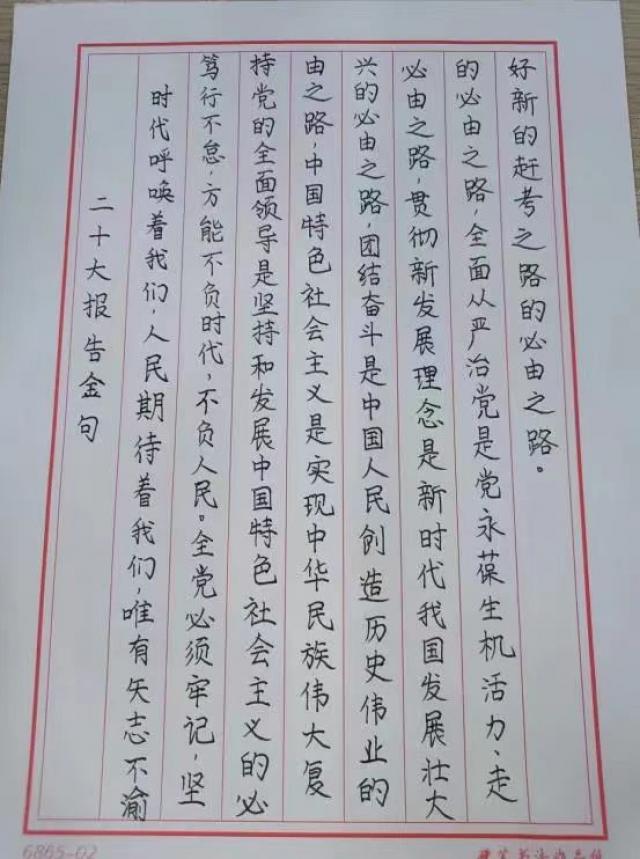 二十大报告金句
时代呼唤着我们,人民期待着我们,唯有矢志不渝
笃行不怠,方能不负时代,不负人民。全党必须牢记,坚
持党的全面领导是坚持和发展中国特色社会主义的必
由之路,中国特色社会主义是实现中华民族伟大复
兴的必由之路,团结奋斗是中国人民创造历史伟业的
必由之路,贯彻新发展理念是新时代我国发展壮大
的必由之路,全面从严治党是党永葆生机活力、走
好新的赶考之路的必由之路。
6865-02